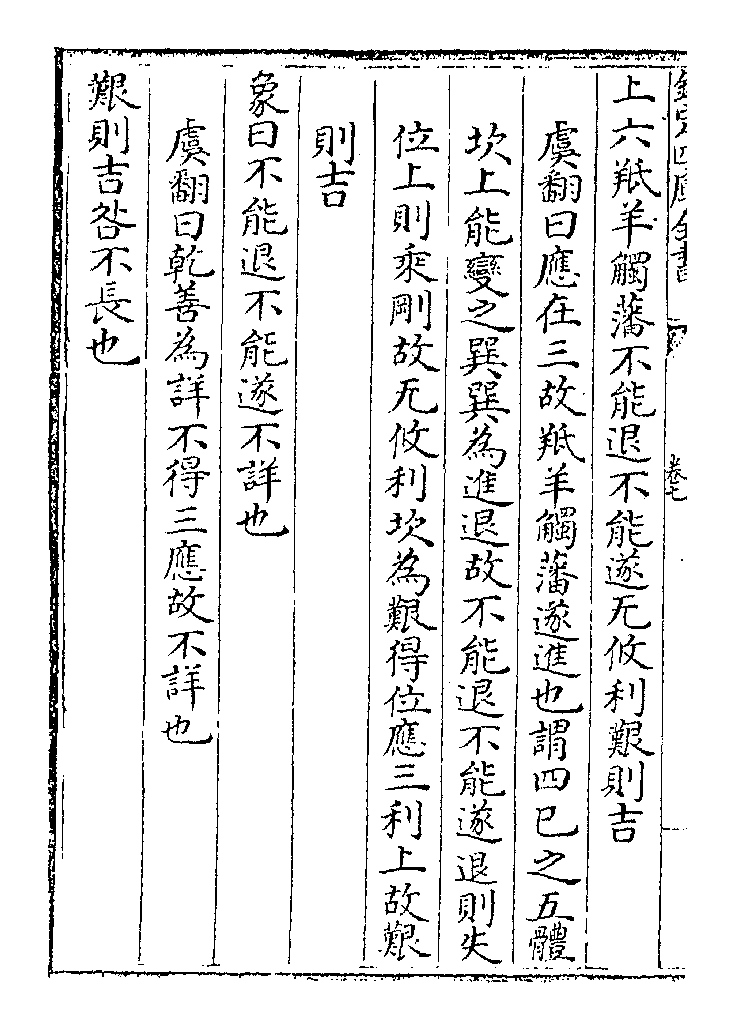 欽定四庫全書
卷七
上六羝羊觸藩不能退不能遂无攸利艱則吉
虞翻曰應在三故羝羊觸藩遂進也謂四已之五體
坎上能變之巽巽為進退故不能退不能遂退則失
位上則乘剛故无攸利坎為艱得位應三利上故艱
則吉
象曰不能退不能遂不詳也
虞翻曰乾善為詳不得三應故不詳也
艱則吉咎不長也